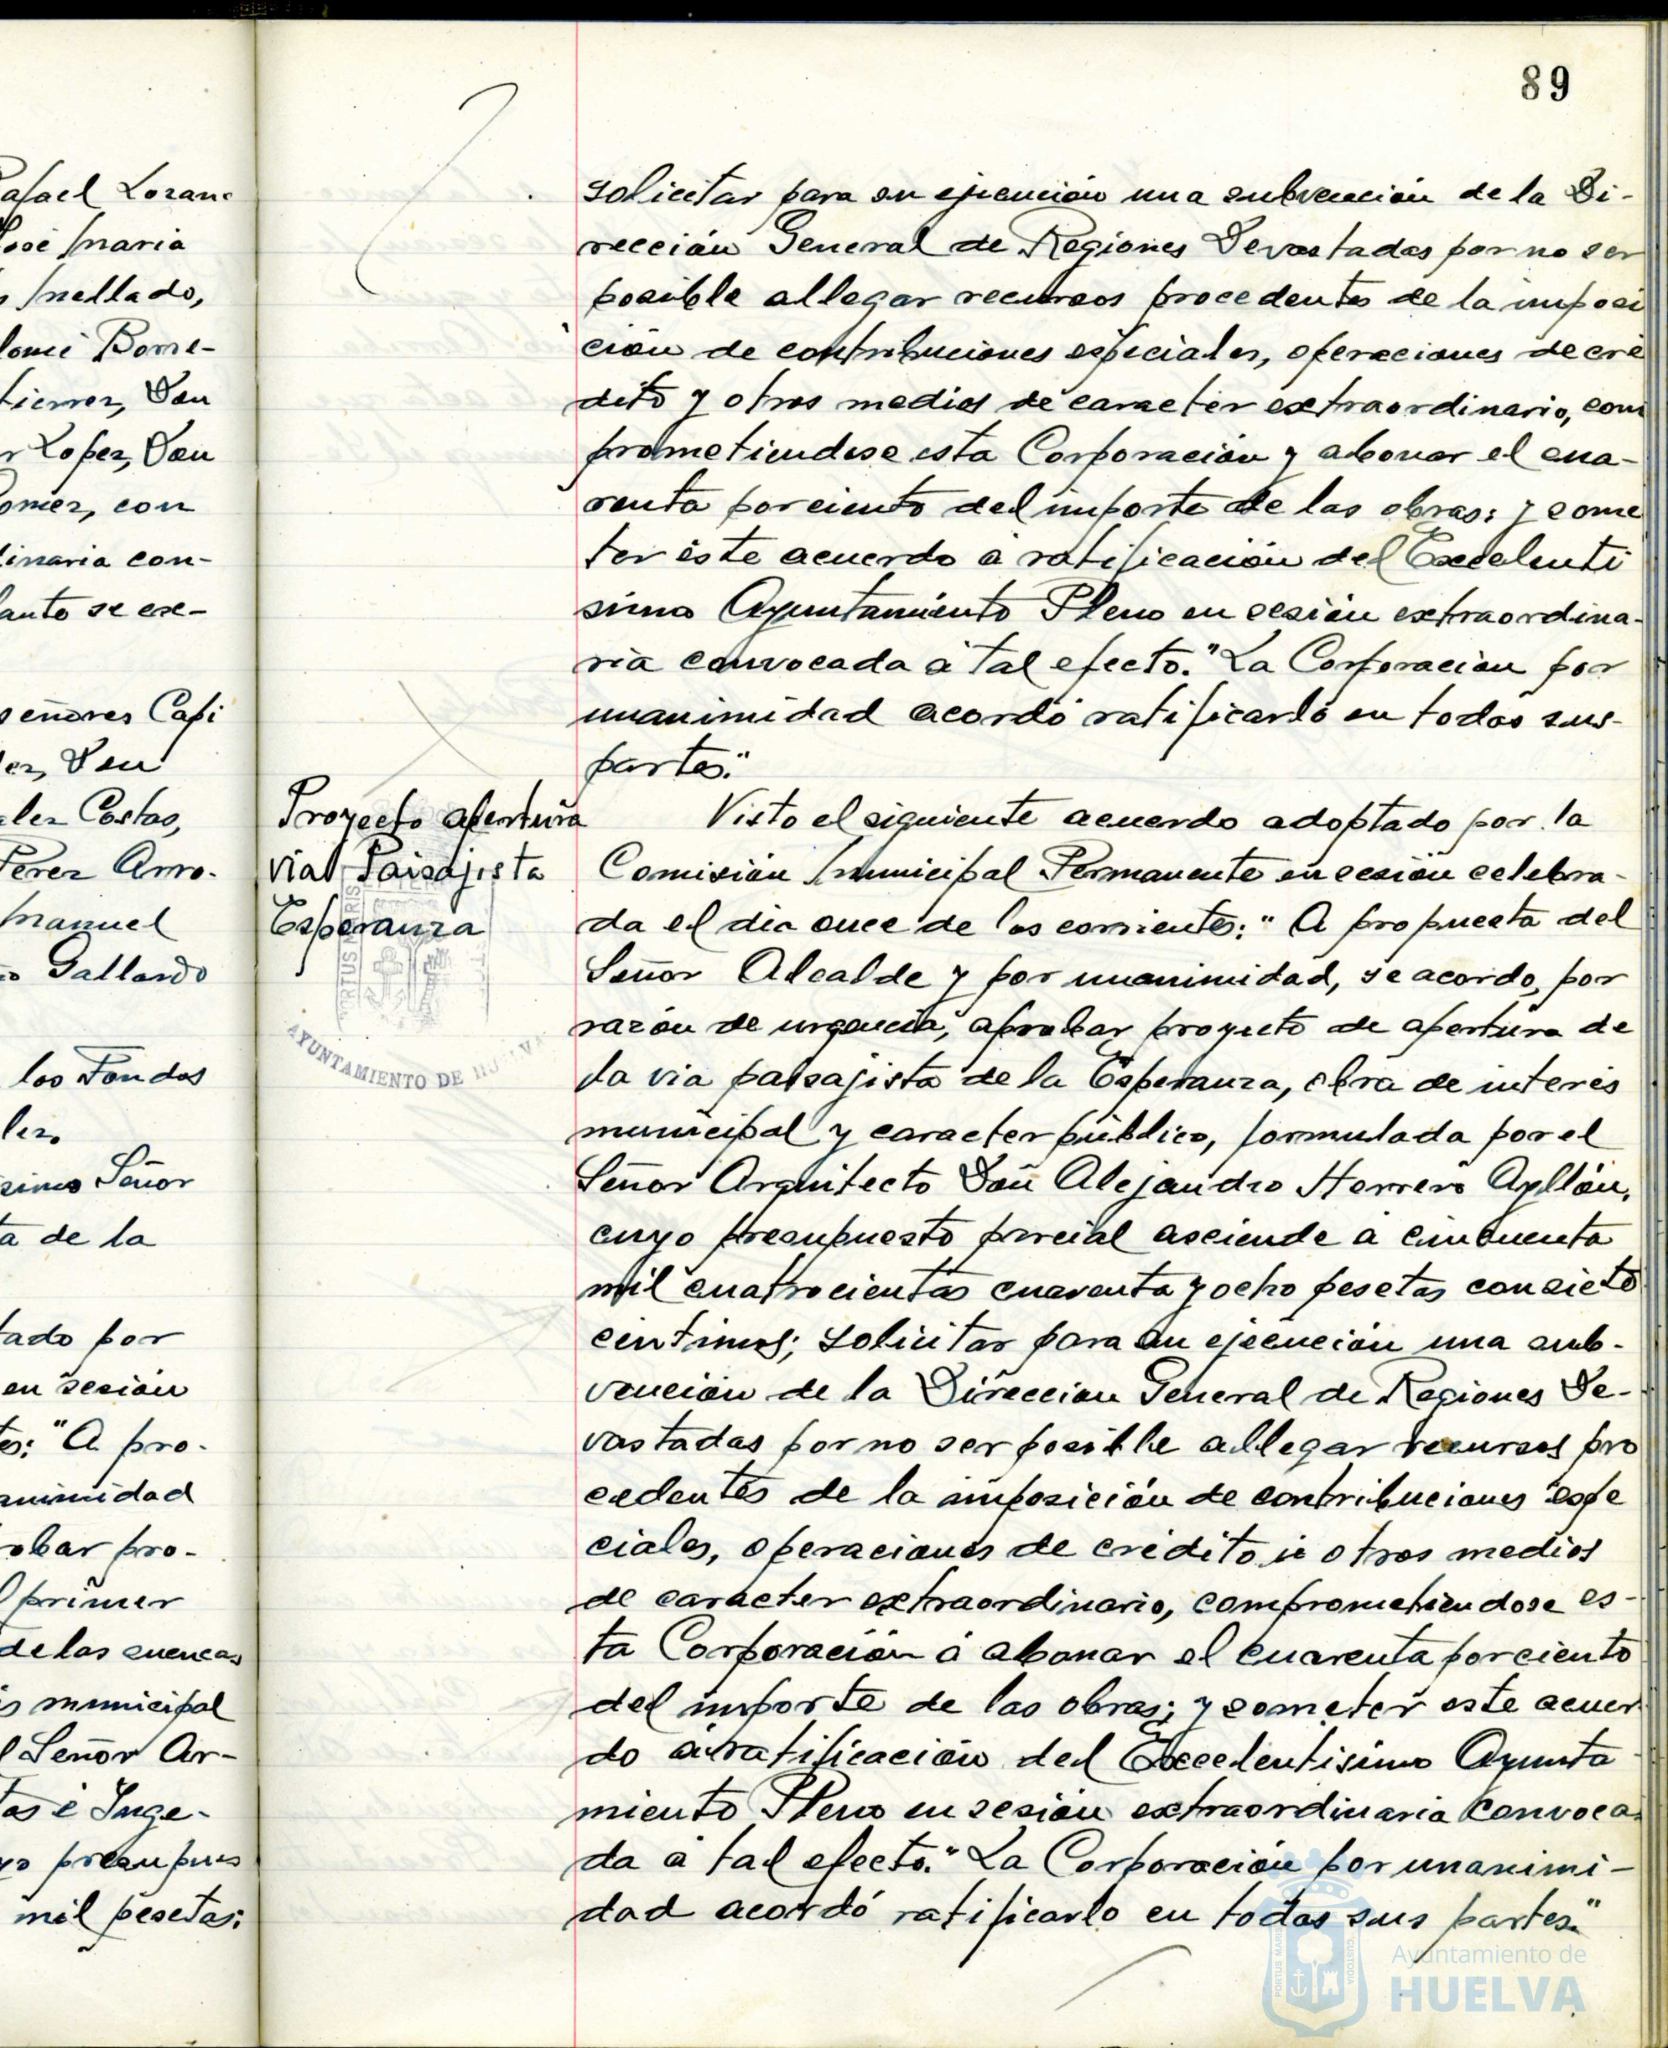 89
Rafael Lozano
José Maria
Mellado,
lomé Borre-
tierrez, Don
Lopez, Don
omez, con
dinaria con-
lanto se ex-
señores Capi
ez, Don
alez Costas,
Perez Arro-
Manuel
Gallardo
los Fondos
les.
simo Señor
ta de la
tado por
en sesión
tes: "A pro-
animidad
robar pro-
l primer
de las cuencas
is municipal
l Señor Ar-
tas é Inge-
yo presupues
mil pesetas:
solicitar para su ejecución una subvención de la Di-
rección General de Regiones Devastadas por no ser
posible allegar recursos procedentes de la imposi
ción de contribuciones especiales, operaciones de cré
dito y otros medios de caracter extraordinario, com
prometiendose esta Corporación y abonar el cua-
renta por ciento del importe de las obras; y some
ter éste acuerdo á ratificación del Excelenti
simo Ayuntamiento Pleno en sesión extraordina-
ria convocada á tal efecto." La Corporación por
unanimidad acordó ratificarlo en todas sus
partes."
Proyecto apertura
vial Paisajista
Esperanza
Visto el siguiente acuerdo adoptado por la
Comisión Municipal Permanente en sesión celebra-
da el dia once de los corrientes: "A propuesta del
Señor Alcalde y por unanimidad, se acordo, por
razón de urgencia, aprobar proyecto de apertura de
la via paisajista de la Esperanza, obra de interés
municipal y caracter público, formulada por el
Señor Arquitecto Don Alejandro Herrero Ayllón,
cuyo presupuesto parcial asciende á cincuenta
mil cuatrocientas cuarenta y ocho pesetas con siete
céntimos; solicitar para su ejecución una sub-
vención de la Dirección General de Regiones De-
vastadas por no ser posible allegar recursos pro
cedentes de la imposición de contribuciones espe
ciales, operaciones de crédito ú otros medios
de caracter extraordinario, comprometiendose es-
ta Corporación á abonar el cuarenta por ciento
del importe de las obras; y someter este acuer
do á ratificación del Excelentisimo Ayunta
miento Pleno en sesión extraordinaria convoca-
da á tal efecto." La Corporación por unanimi-
dad acordó ratificarlo en todas sus partes."
AYUNTAMIENTO DE HUELVA
PORTUS MARIS
CUSTODIA
Ayuntamiento de
HUELVA